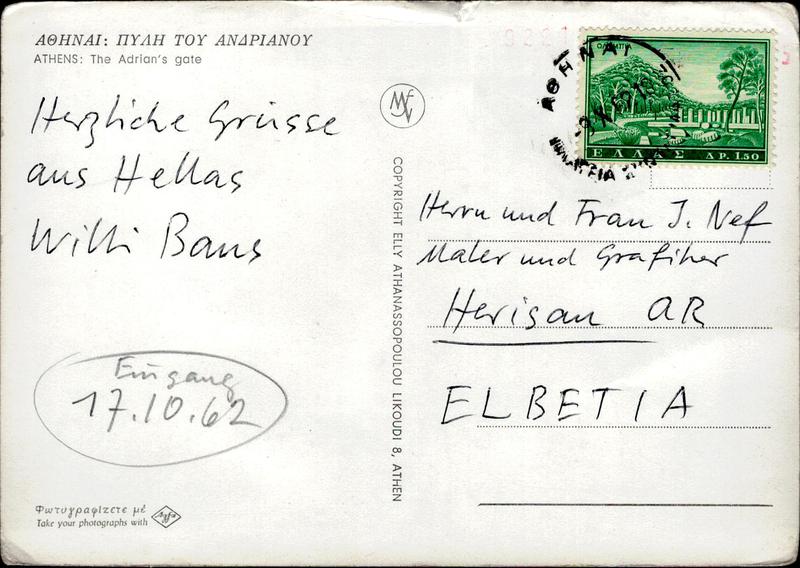 ΑΘΗΝΑΙ: ΠΥΛΗ ΤΟΥ ΑΝΔΡΙΑΝΟΥ
ATHENS: The Adrian's gate
Herzliche Grüsse
aus Hellas
Willi Baus
Eingang
17.10.62
Φωτογραφίζετε μέ
Take your photographs with Agfa
COPYRIGHT ELLY ATHANASSOPOULOU LIKOUDI 8, ATHEN
ΟΛΥΜΠΙΑ
ΕΛΛΑΣ ΔΡ. 1.50
ΑΘΗΝΑΙ
Herrn und Frau J. Nef
Maler und Grafiker
Herisau AR
ELBETIA